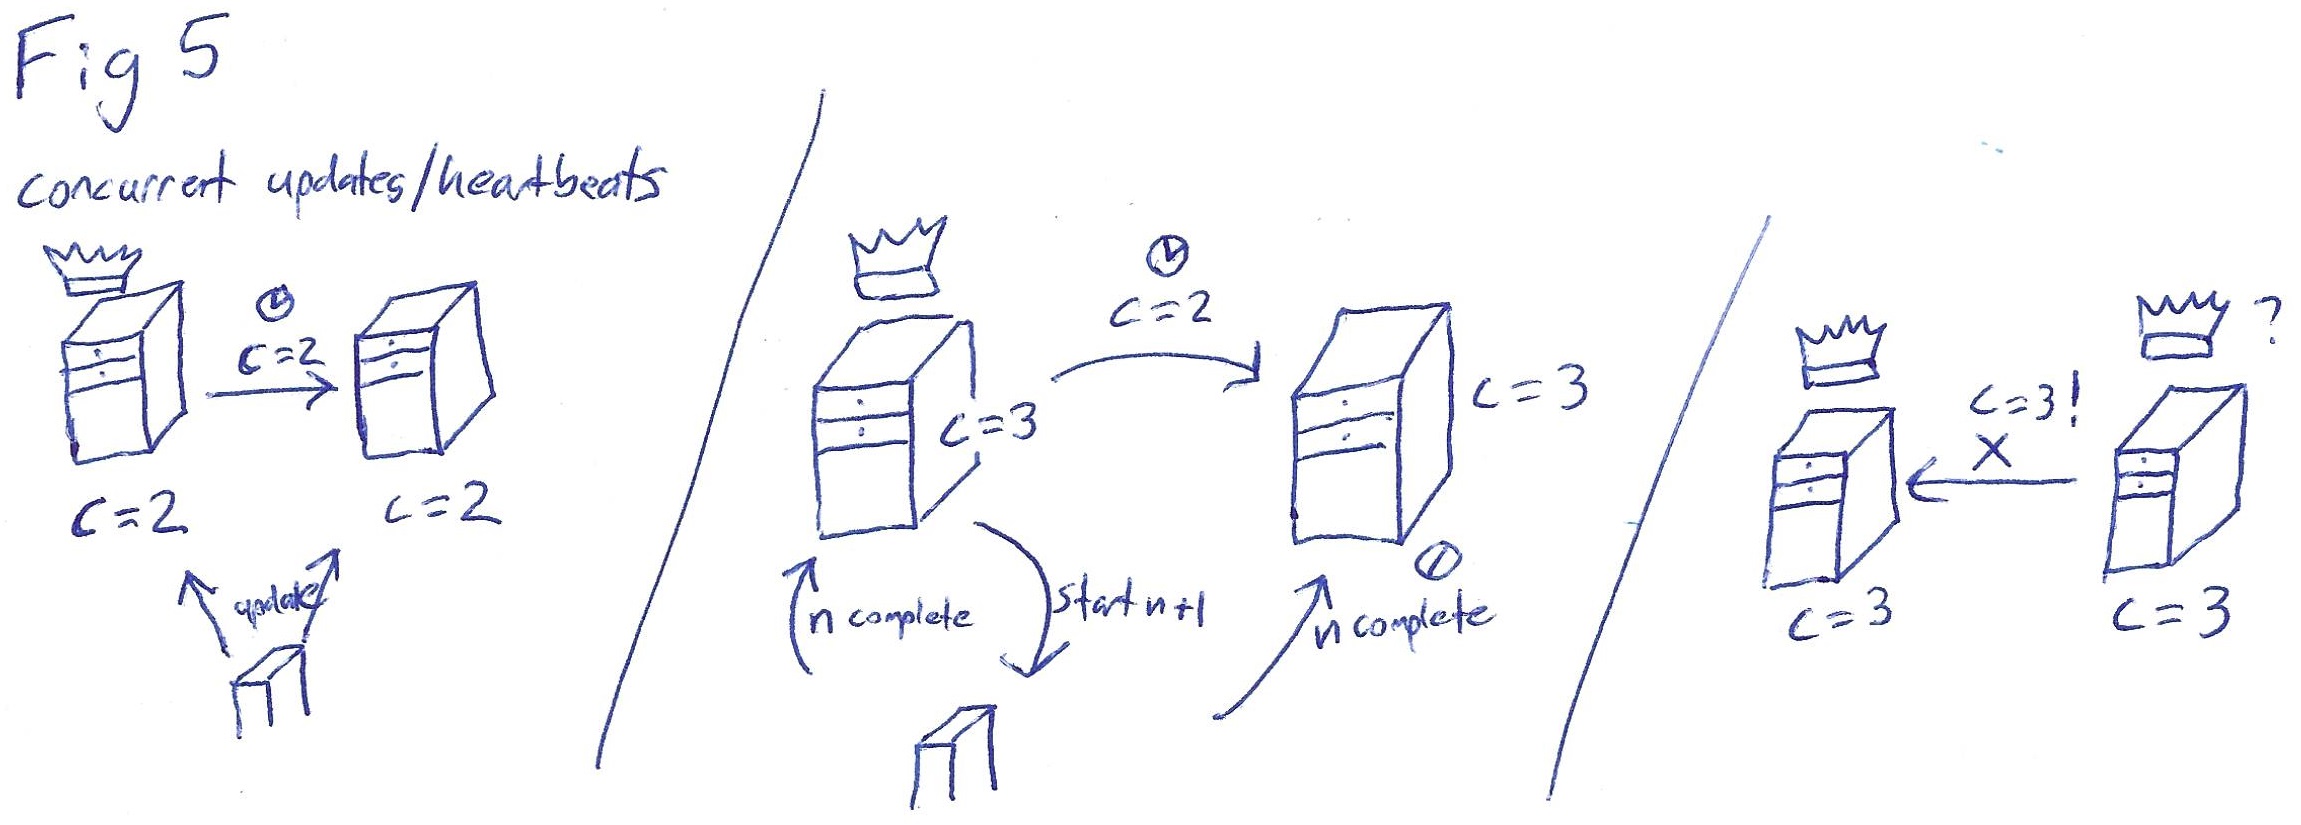 Fig 5
concurrent updates/heartbeats
c=2
c=2
c=2
update
c=2
c=3
c=3
n complete
start n+1
n complete
?
c=3!
X
c=3
c=3